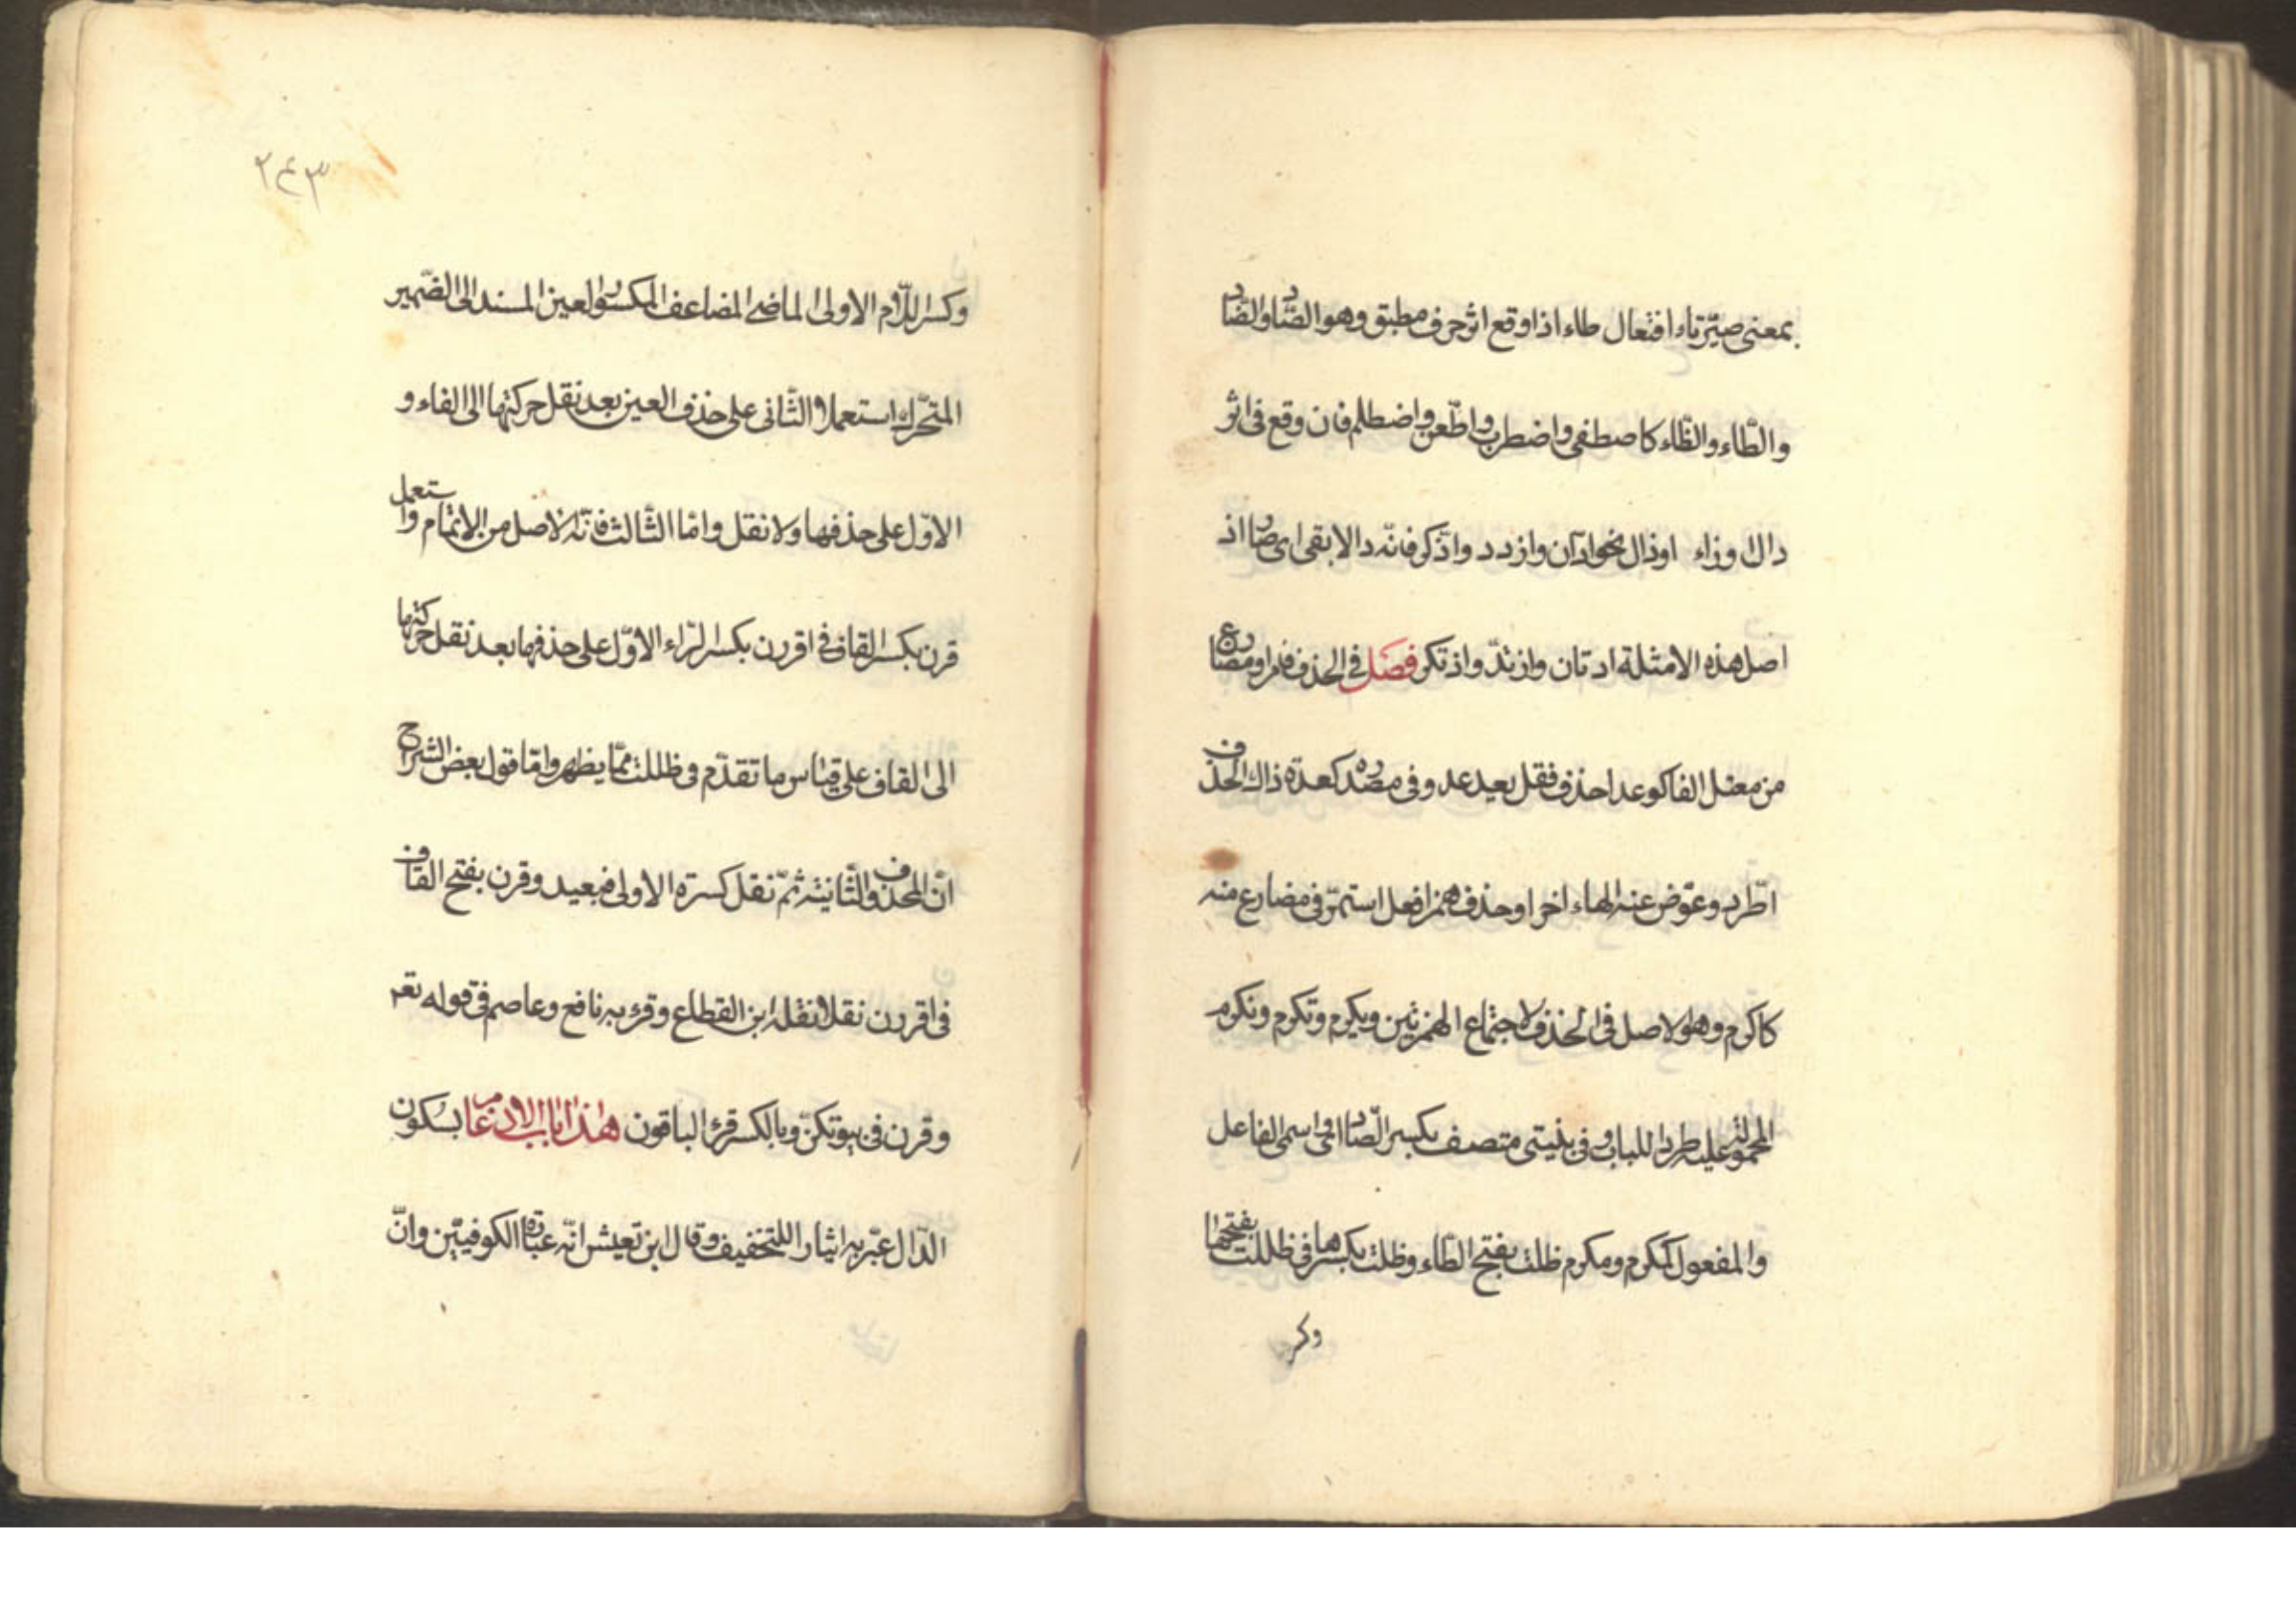 بمعنى صيّر تاء افتعال طاء اذا وقع اثر حرف مطبق وهو الصّاد والضّاد
والطّاء والظّاء كاصطفى واضطرب واطّعن واضطلم فان وقع فى اثر
دال او زاء او ذال نحو ادّان وازدد وادّكر فانّه دالا بقى اى صار اذ
اصل هذه الامثلة ادتان وازتدّ واذتكر فصل فى الحذف فامر او مضارع
من معتل الفا كوعد احذف فقل يعد عد وفى مصدره كعدة ذاك الحذف
اطّرد وعوّض عنه الهاء اخرا وحذف همز افعل استمرّ فى مضارع منه
كاكرم وهو الاصل فى الحذف لاجتماع الهمزتين ويكرم وتكرم ونكرم
المحمولة عليه طردا للباب وفى بنيتى متصف بكسر الصّاد اى واسمى الفاعل
والمفعول كمكرم ومكرم ظلت بفتح الظّاء وظلت بكسرها فى ظللت بفتحها
وكر
٢٤٣
وكسر اللّام الاولى الماضى المضاعف المكسور العين المسند الى الضّمير
المتحّرك استعملا والثّانى على حذف العين بعد نقل حركتها الى الفاء و
الاوّل على حذفها ولا نقل وامّا الثّالث فانّه الاصل من الاتمام واستعمل
قرن بكسر القاف فى اقررن بكسر الرّاء الاوّل على حذفها بعد نقل حركتها
الى القاف على قياس ما تقدّم فى ظللت ممّا يظهر وامّا قول بعض الشراح
انّ المحذوف الثّانية ثمّ نقل كسرة الاولى فبعيد وقرن بفتح القاف
فى اقررن نقلا نقله ابن القطاع وقرء به نافع وعاصم فى قوله تعم
وقرن فى بيوتكنّ وبالكسر قرء الباقون هذا باب الادغام بسكون
الدّال عبّر به ايثارا للتخفيف وقال ابن يعيش انّه عبارة الكوفيّين وانّ